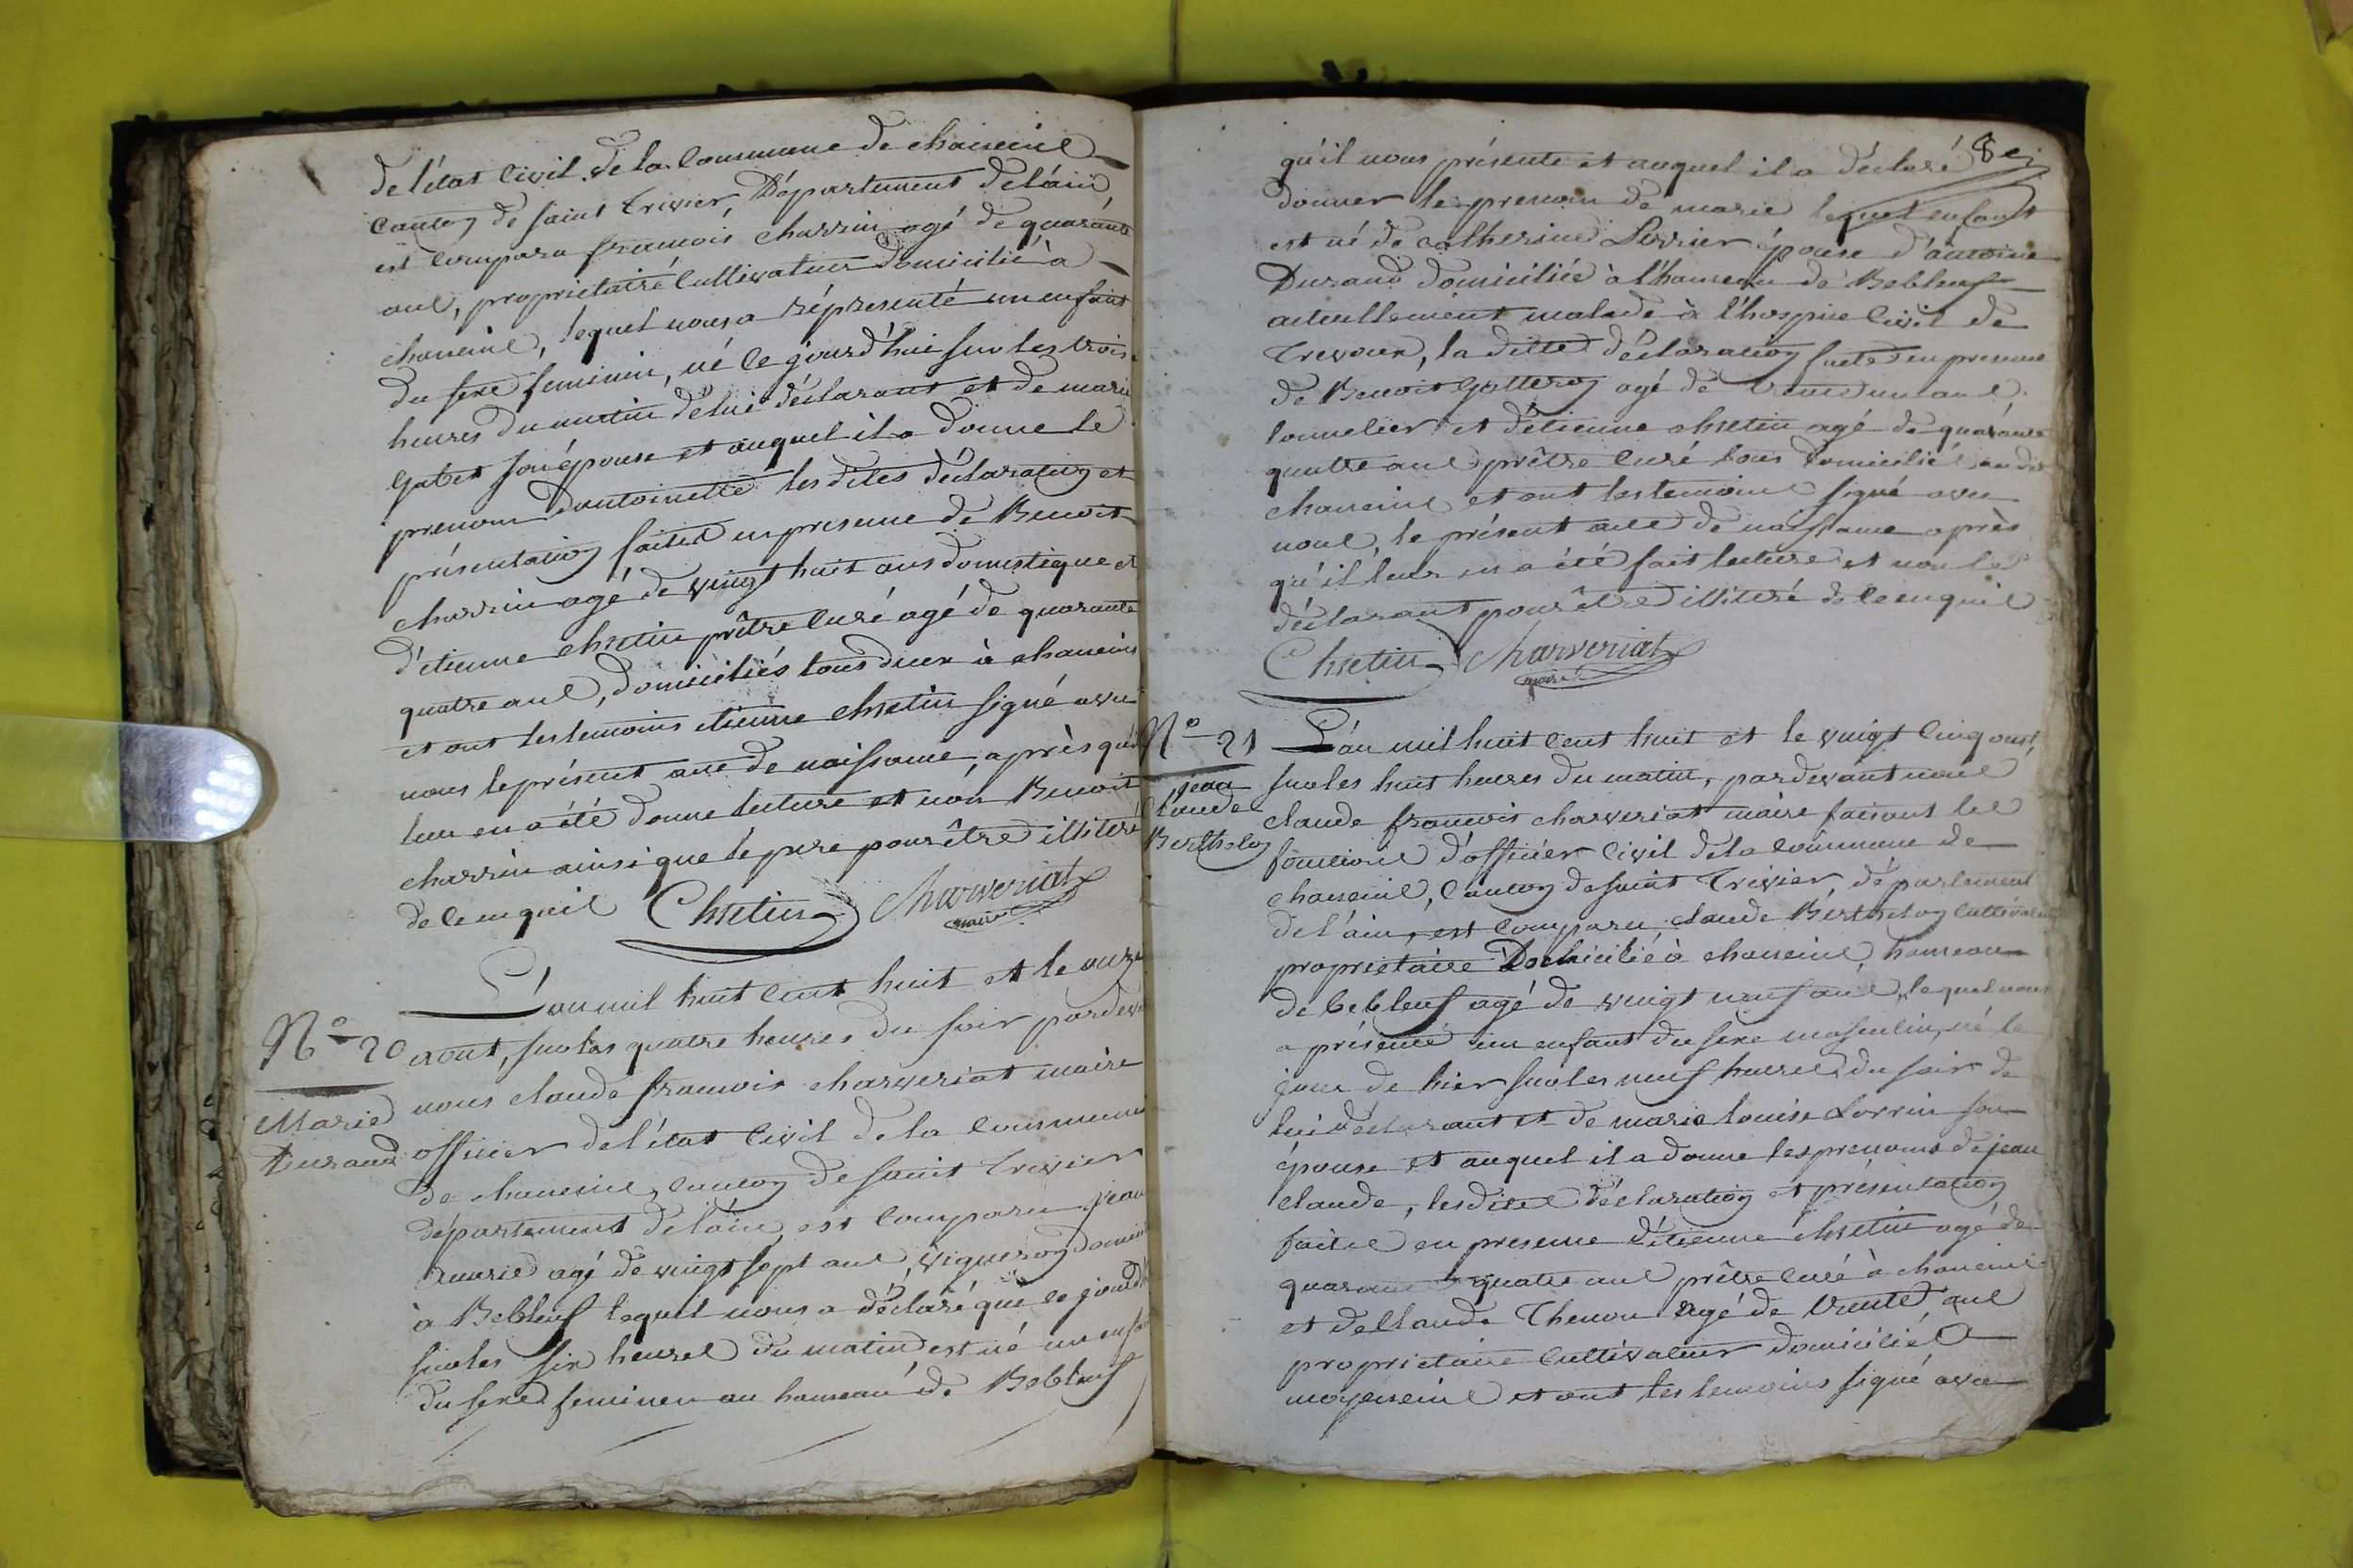 de l'état Civil de la Commune de chaneine
Canton de saint trivier, Département de l'ain
est Comparu francois charrin agé de quarante
ans, proprietaire Cultivateur domicilié à
chaneins, lequel nous a représenté un enfant
du sexe feminin, né ce jourd'hui sur les trois
heures du matin de lui déclarant et de marie
Gabet son épouse et auquel il a donne le
prenom d'antoinette les dites déclaration et
présentation faites en presence de Benoit
charrin agé de vingt huit ans domestique et
d'etienne chretin prêtre curé agé de quarante
quatre ans, domiciliés tous deux à chaneins
et ont les temoins etienne chretin signé avec
nous le présent acte de naissance, après qu'il
leur en a été donne lecture et non Benoit
charrin ainsi que le pere pour être illitéré
de ce enquis Chretin Charveriat
maire
L'an mil huit cent huit et le onze
N° 20 aout, sur les quatre heures du soir pardevant
nous claude francois charveriat maire
Marie
Durand officier de l'état civil de la commune
de chaneins, canton de saint trivier
département de l'ain, est comparu jean
agé de vingt sept ans, vigneron domicilié
à Bebleuf lequel nous a déclaré que ce jourd'hui
sur les six heures du matin est né un enfant
du sexe feminen au hameau de Bebleuf
8
qu'il nous présente et auquel il a déclaré
donner le prenom de marie lequel enfant
est né de catherine épouse d'antoine
Durand domiciliée à l'hameau de Bebleuf
actuellement malade à l'hospice civil de
trevoux, la ditte déclaration faite en presence
de Benoit agé de trente un ans
tonnelier et d'etienne chretin agé de quarante
quatre ans prêtre curé tous domicilié au dit
chaneins et ont les temoins signé avec
nous, le présent acte de naissance après
qu'il leur en a été fait lecture et non le
déclarant pour être illitéré de ce enquis
Chretin Charveriat
maire
N° 21 L'an mil huit cent huit et le vingt cinq aout,
jean
claude
Berthelon
sur les huit heures du matin, pardevant nous
claude francois charveriat maire faisant les
fonctions d'officier civil de la commune de
chaneins, canton de saint trivier, département
de l'ain, est comparu claude Berthelon cultivateur
proprietaire Domicilié à chaneins, hameau
de bebleuf agé de vingt neuf ans, lequel nous
a présenté un enfant du sexe masculin, né le
jour de hier sur les neuf heures du soir de
lui déclarant et de marie louise Lorrin son
épouse et auquel il a donne les prenoms de jean
claude, les dites déclaration et présentation
faites en presence d'etienne chretin agé de
quarante quatre ans prêtre curé à chaneins
et de claude Thenon agé de trente ans
proprietaire cultivateur domicilié à
et ont les temoins signé avec